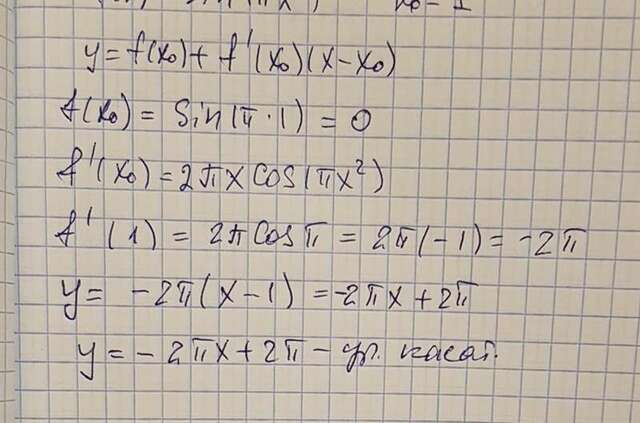 y = f(x₀) + f'(x₀)(x-x₀)
f(x₀) = sin(π·1) = 0
f'(x₀) = 2πx cos(πx²)
f'(1) = 2π cos π = 2π(-1) = -2π
y = -2π(x-1) = -2πx + 2π
y = -2πx + 2π - ур. касат.